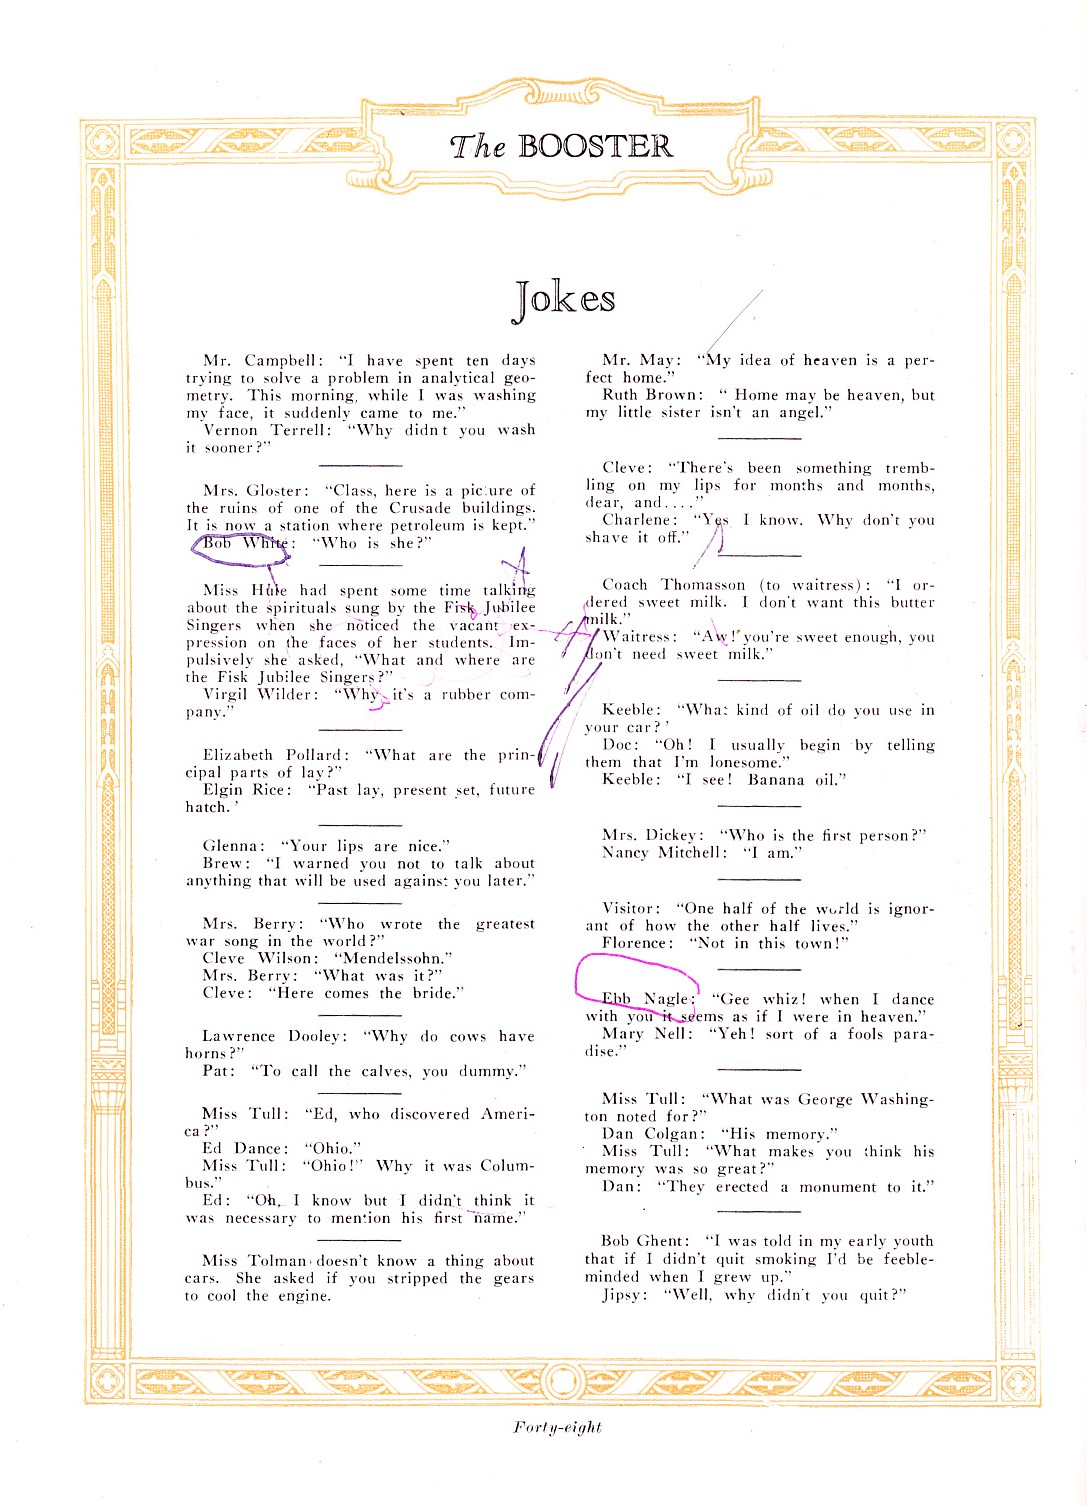 The BOOSTER
Jokes
Mr. Campbell: "I have spent ten days
trying to solve a problem in analytical geo-
metry. This morning, while I was washing
my face, it suddenly came to me."
Vernon Terrell: "Why didn't you wash
it sooner?"
Mrs. Gloster: "Class, here is a picture of
the ruins of one of the Crusade buildings.
It is now a station where petroleum is kept."
Bob White: "Who is she?"
Miss Hule had spent some time talking
about the spirituals sung by the Fisk Jubilee
Singers when she noticed the vacant ex-
pression on the faces of her students. Im-
pulsively she asked, "What and where are
the Fisk Jubilee Singers?"
Virgil Wilder: "Why it's a rubber com-
pany."
Elizabeth Pollard: "What are the prin-
cipal parts of lay?"
Elgin Rice: "Past lay, present set, future
hatch.'
Glenna: "Your lips are nice."
Brew: "I warned you not to talk about
anything that will be used against you later."
Mrs. Berry: "Who wrote the greatest
war song in the world?"
Cleve Wilson: "Mendelssohn."
Mrs. Berry: "What was it?"
Cleve: "Here comes the bride."
Lawrence Dooley: "Why do cows have
horns?"
Pat: "To call the calves, you dummy."
Miss Tull: "Ed, who discovered Ameri-
ca?"
Ed Dance: "Ohio."
Miss Tull: "Ohio!" Why it was Colum-
bus."
Ed: "Oh, I know but I didn't think it
was necessary to mention his first name."
Miss Tolman doesn't know a thing about
cars. She asked if you stripped the gears
to cool the engine.
Mr. May: "My idea of heaven is a per-
fect home."
Ruth Brown: " Home may be heaven, but
my little sister isn't an angel."
Cleve: "There's been something tremb-
ling on my lips for months and months,
dear, and...."
Charlene: "Yes I know. Why don't you
shave it off."
Coach Thomasson (to waitress): "I or-
dered sweet milk. I don't want this butter
milk."
Waitress: "Aw! you're sweet enough, you
don't need sweet milk."
Keeble: "What kind of oil do you use in
your car?'
Doc: "Oh! I usually begin by telling
them that I'm lonesome."
Keeble: "I see! Banana oil."
Mrs. Dickey: "Who is the first person?"
Nancy Mitchell: "I am."
Visitor: "One half of the world is ignor-
ant of how the other half lives."
Florence: "Not in this town!"
Ebb Nagle: "Gee whiz! when I dance
with you it seems as if I were in heaven."
Mary Nell: "Yeh! sort of a fools para-
dise."
Miss Tull: "What was George Washing-
ton noted for?"
Dan Colgan: "His memory."
Miss Tull: "What makes you think his
memory was so great?"
Dan: "They erected a monument to it."
Bob Ghent: "I was told in my early youth
that if I didn't quit smoking I'd be feeble-
minded when I grew up."
Jipsy: "Well, why didn't you quit?"
Forty-eight